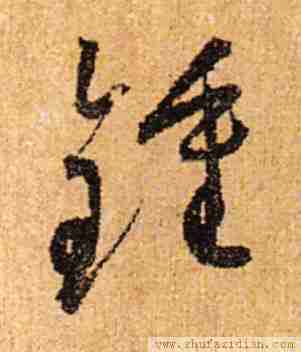 鍾
www.shufazidian.com